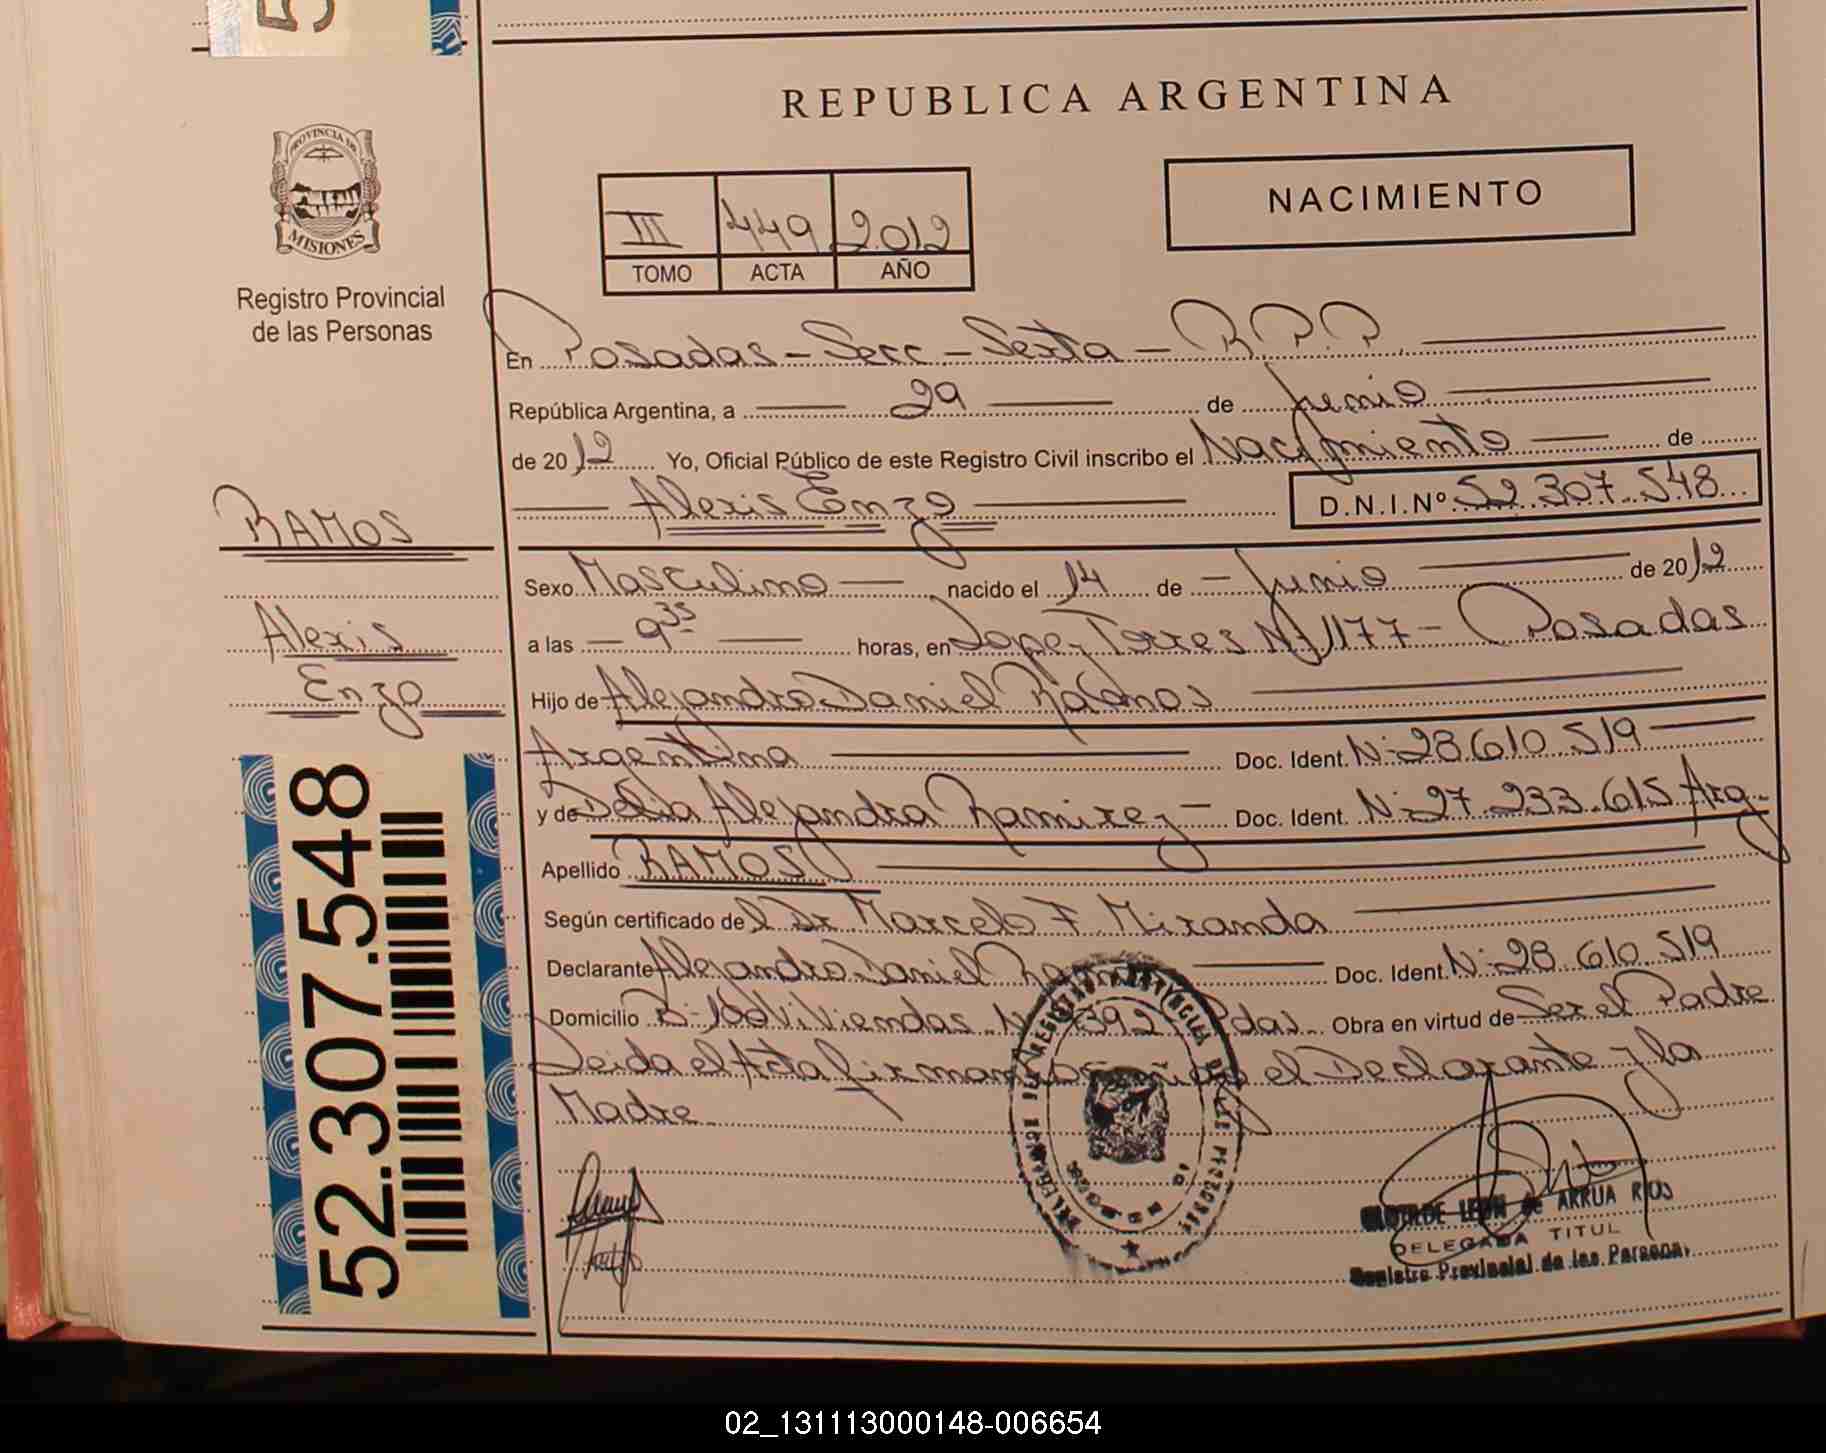 REPUBLICA ARGENTINA
NACIMIENTO
PROVINCIA DE
MISIONES
Registro Provincial
de las Personas
III 449 2012
TOMO ACTA AÑO
En Posadas - Secc - Sexta - R.P.P.
República Argentina, a 29 de Junio
de 2012 Yo, Oficial Público de este Registro Civil inscribo el Nacimiento de
Alexis Enzo D.N.I.Nº 52.307.548
RAMOS
Alexis
Enzo
Sexo Masculino nacido el 14 de Junio de 2012
a las 9 35 horas, en Lopez Torres Nº 1177 - Posadas
Hijo de Alejandro Daniel Ramos
Argentina Doc. Ident. Nº 28.610.519
y de Delia Alejandra Ramirez - Doc. Ident. Nº 27.233.615 Arg.
Apellido RAMOS
Según certificado del Dr Marcelo F. Miranda
Declarante Alejandro Daniel Ramos Doc. Ident. Nº 28.610.519
Domicilio Bº 100 Viviendas Pdas. Obra en virtud de Ser el Padre
Leida el Acta firman el Declarante y la
Madre
52.307.548
CLOTILDE LEON de ARRUA RIOS
DELEGADA TITUL
Registro Provincial de las Personas
02_131113000148-006654